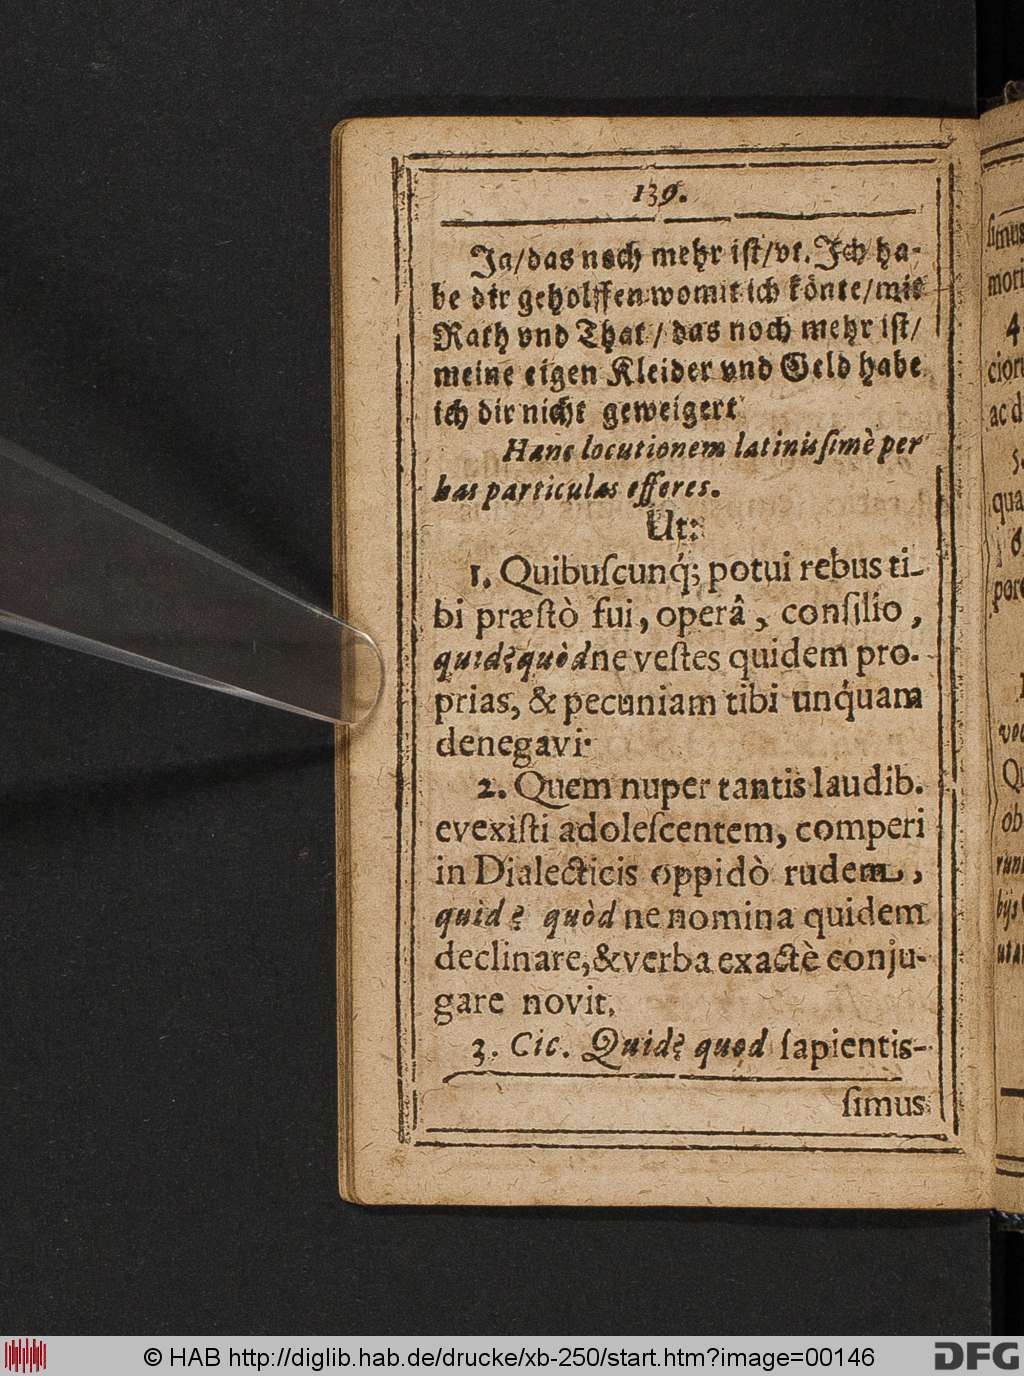 139.
Ja/das noch mehr ist/vt. Ich ha-
be dir geholffen womit ich könte/mit
Rath vnd That/ das noch mehr ist/
meine eigen Kleider vnd Geld habe
ich dir nicht geweigert
Hanc locutionem latinissimè per
has particulas efferes.
Ut:
1. Quibuſcunq́; potui rebus ti-
bi præſtò fui, operâ, conſilio,
quid? quòd ne veſtes quidem pro-
prias, & pecuniam tibi unq́uam
denegavi.
2. Quem nuper tantis laudib.
evexiſti adoleſcentem, comperi
in Dialecticis oppidò rudem,
quid? quòd ne nomina quidem
declinare, & verba exactè conju-
gare novit.
3. Cic. Quid? quod ſapientis-
ſimus
ſimus
mori
4
cior
ac d
qua
6.
pore
Qu
ob
runt
bijs
utan
© HAB http://diglib.hab.de/drucke/xb-250/start.htm?image=00146
DFG